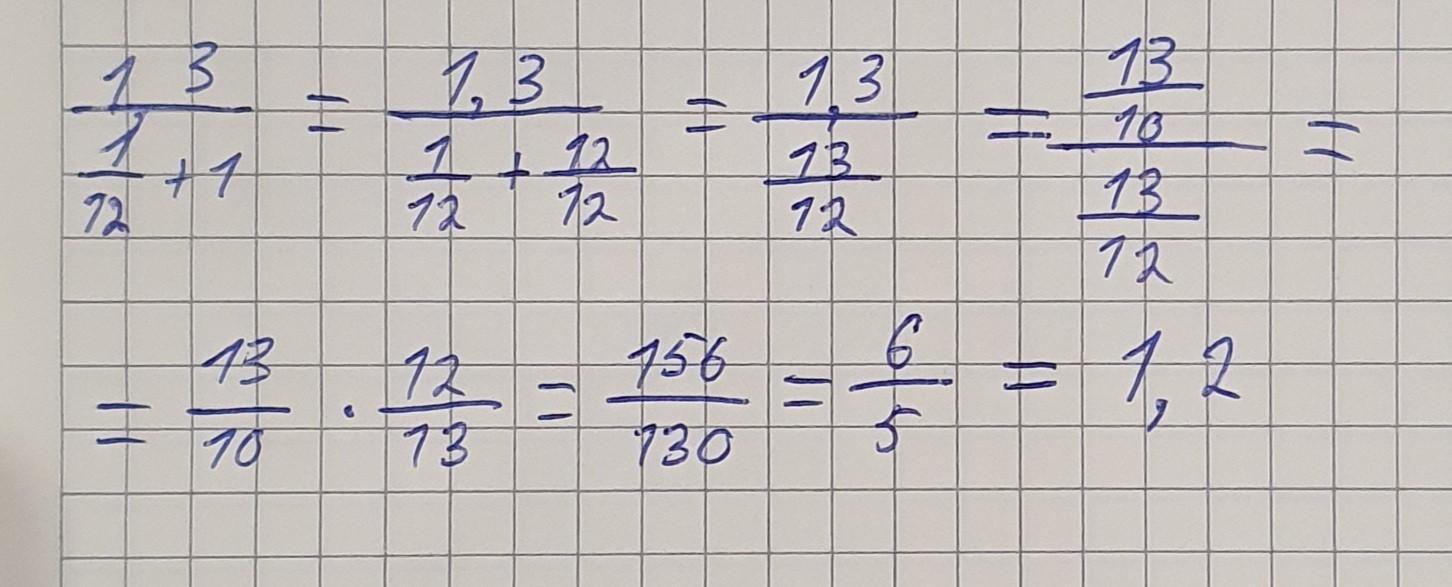 1,3/(1/12 + 1) = 1,3/(1/12 + 12/12) = 1,3/(13/12) = (13/10)/(13/12) =
= 13/10 · 12/13 = 156/130 = 6/5 = 1,2